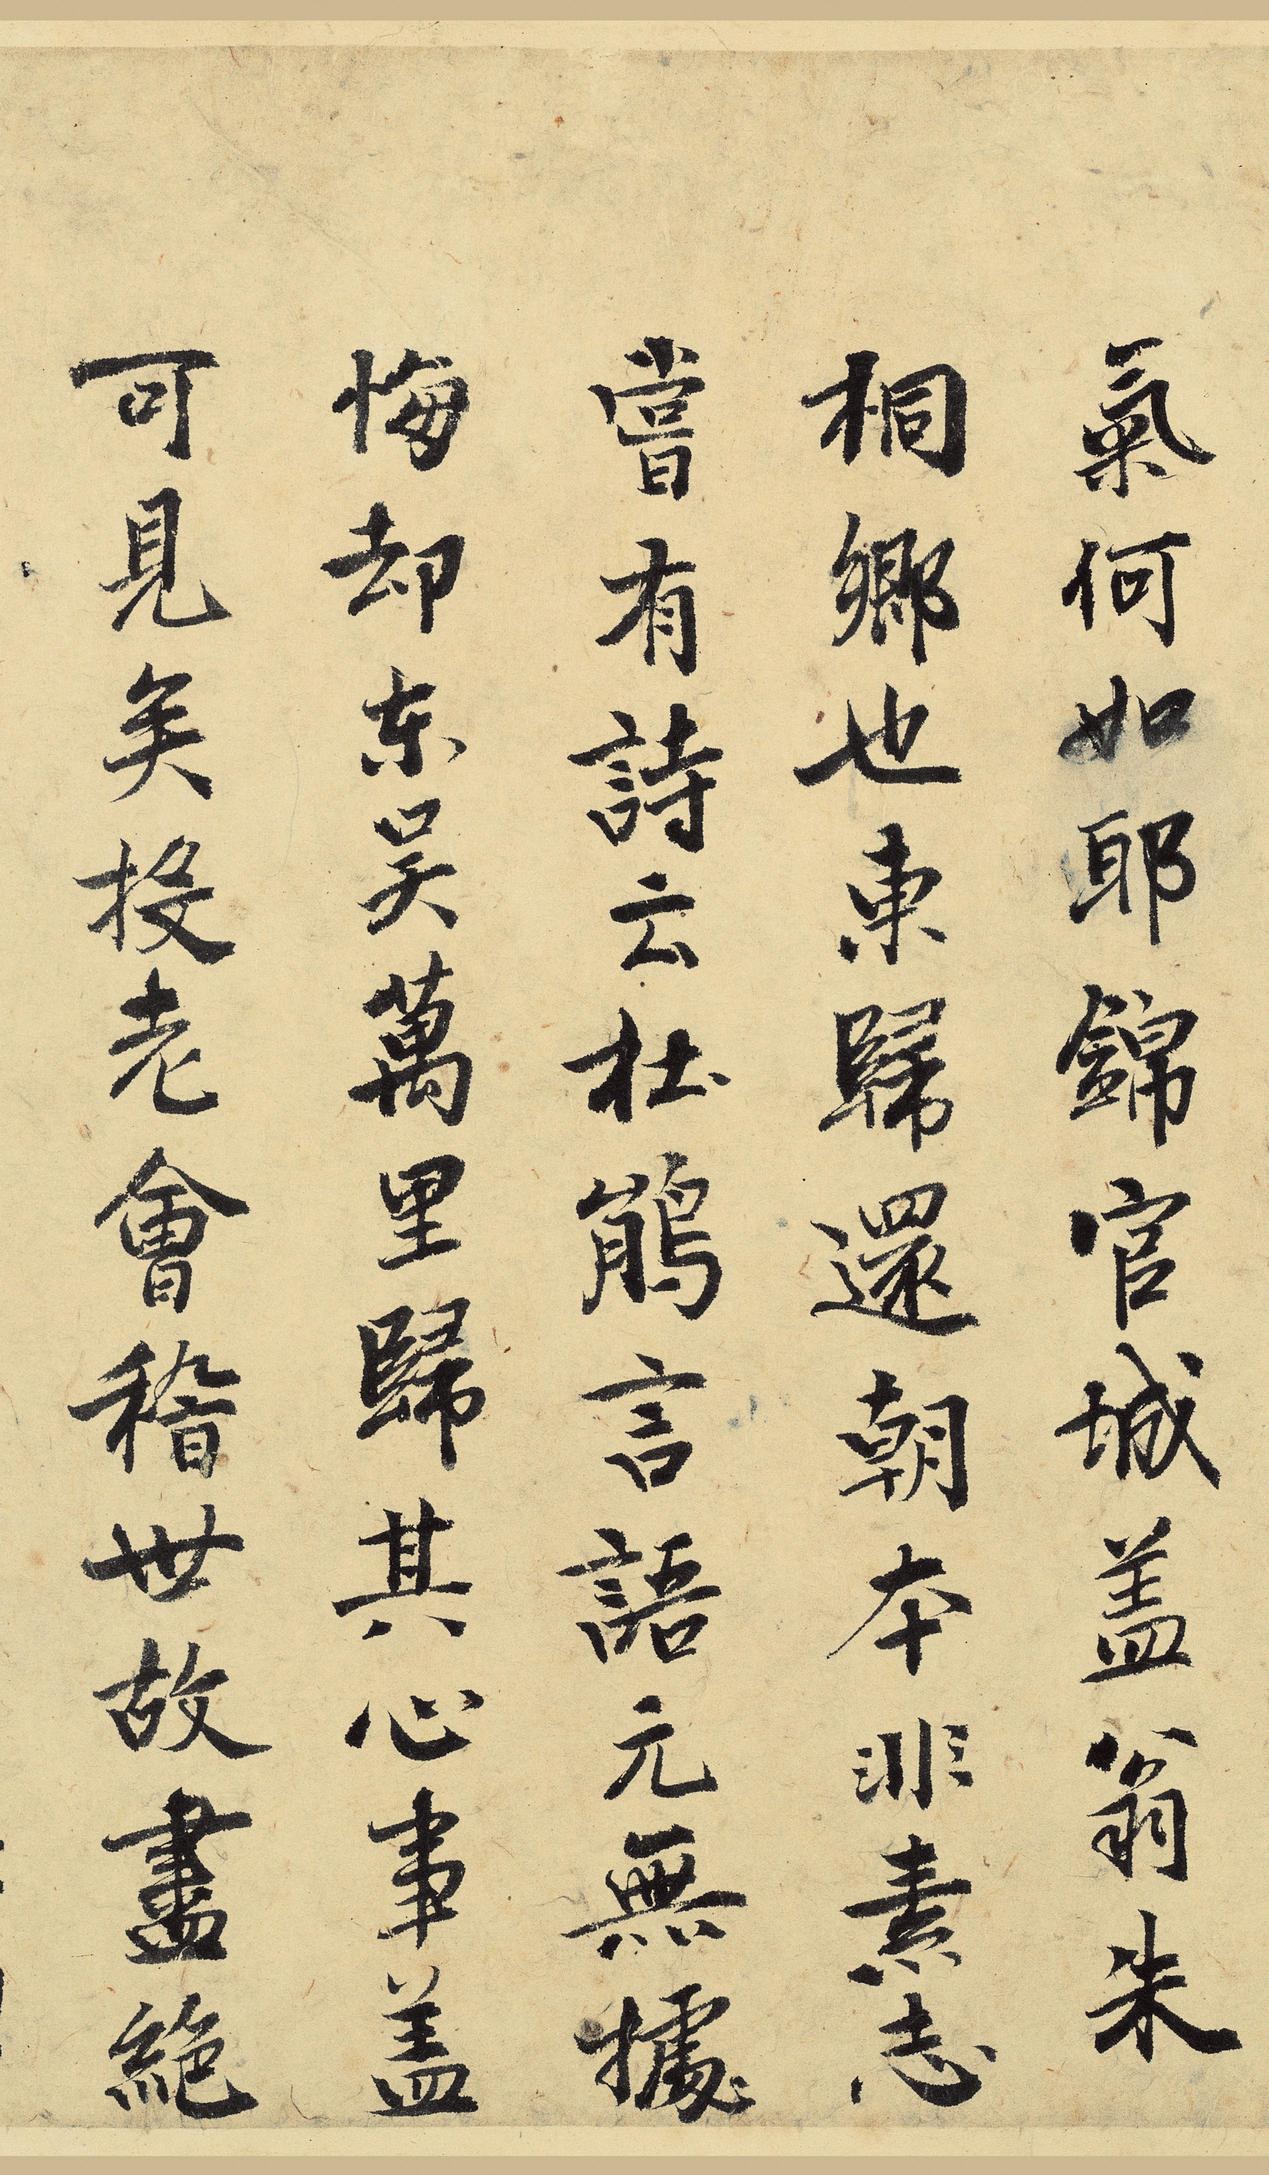 氣何如耶錦官城盖翁朱
桐鄉也東歸還朝本非素志
嘗有詩云杜鵑言語元無據
悔却东吴萬里歸其心事盖
可見矣投老會稽世故盡絶